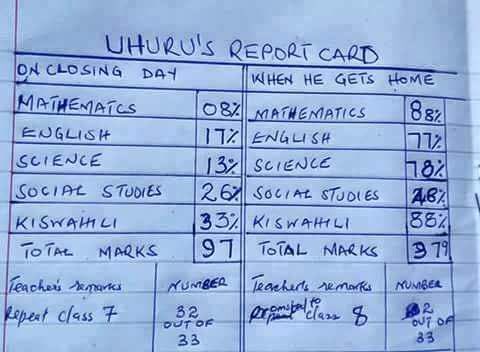 UHURU'S REPORT CARD
ON CLOSING DAY
MATHEMATICS 08%
ENGLISH 17%
SCIENCE 13%
SOCIAL STUDIES 26%
KISWAHILI 33%
TOTAL MARKS 97
Teacher's remarks
Repeat class 7
NUMBER
32
OUT OF
33
WHEN HE GETS HOME
MATHEMATICS 88%
ENGLISH 77%
SCIENCE 78%
SOCIAL STUDIES 48%
KISWAHILI 88%
TOTAL MARKS 379
Teacher's remarks
Promoted to
class 8
NUMBER
2
OUT OF
33